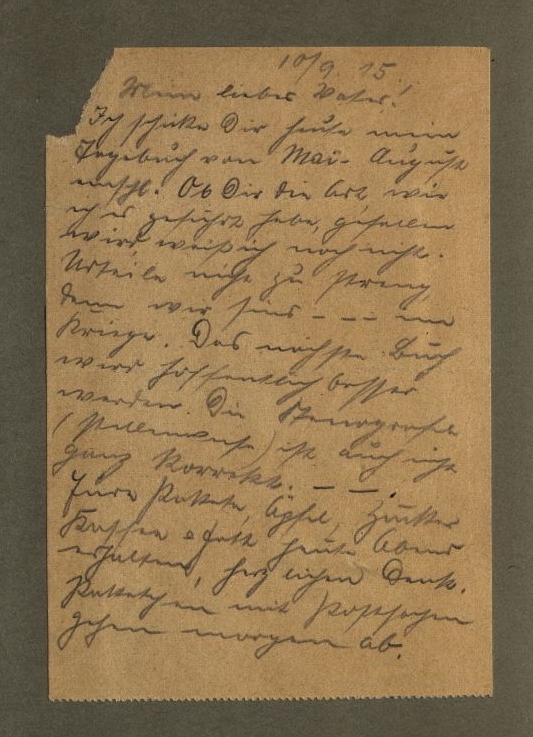 10/9. 15.
Mein lieber Vater!
Ich schicke Dir heute mein
Tagebuch von Mai - August
einschl. Ob Dir die Art, wie
ich es geführt habe, gefallen
wird, weiß ich noch nicht.
Urteile nicht zu streng,
denn wir sind - - - im
Kriege. Das nächste Buch
wird hoffentlich besser
werden. Die Stenografie
(stellenweise) ist auch nicht
ganz korrekt. - - .
Eure Pakete, Äpfel, Zucker
Kaffee & Fett heute Abend
erhalten, herzlichen Dank.
Paketchen mit Postsachen
gehen morgen ab.